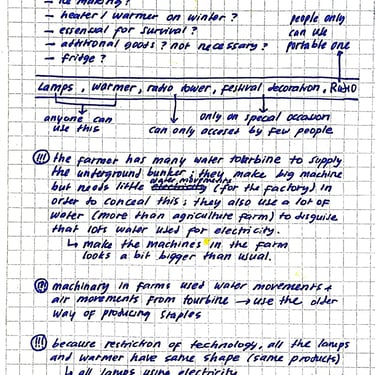 - ice making?
- heater / warmer on winter?   people only
- essencial for survival?   can use
- additional goods? not necessary?   portable one
- fridge?
Lamps, warmer, radio tower, festival decoration, Radio
anyone can   only on special occasion
use this   can only acceses by few people
(!!!) the farmer has many water toterbine to supply
the underground bunker; they make big machine
but needs little water movements electricity (for the factory) in
order to conceal this; they also use a lot of
water (more than agriculture farm) to disguise
that lots water used for electricity.
↳ make the machines in the farm
looks a bit bigger than usual.
(!!!) machinary in farms used water movements +
air movements from tourbine → use the older
way of producing staples
(!!!) because restriction of technology, all the lamps
and warmer have same shape (same products)
↳ all lamps using electricity